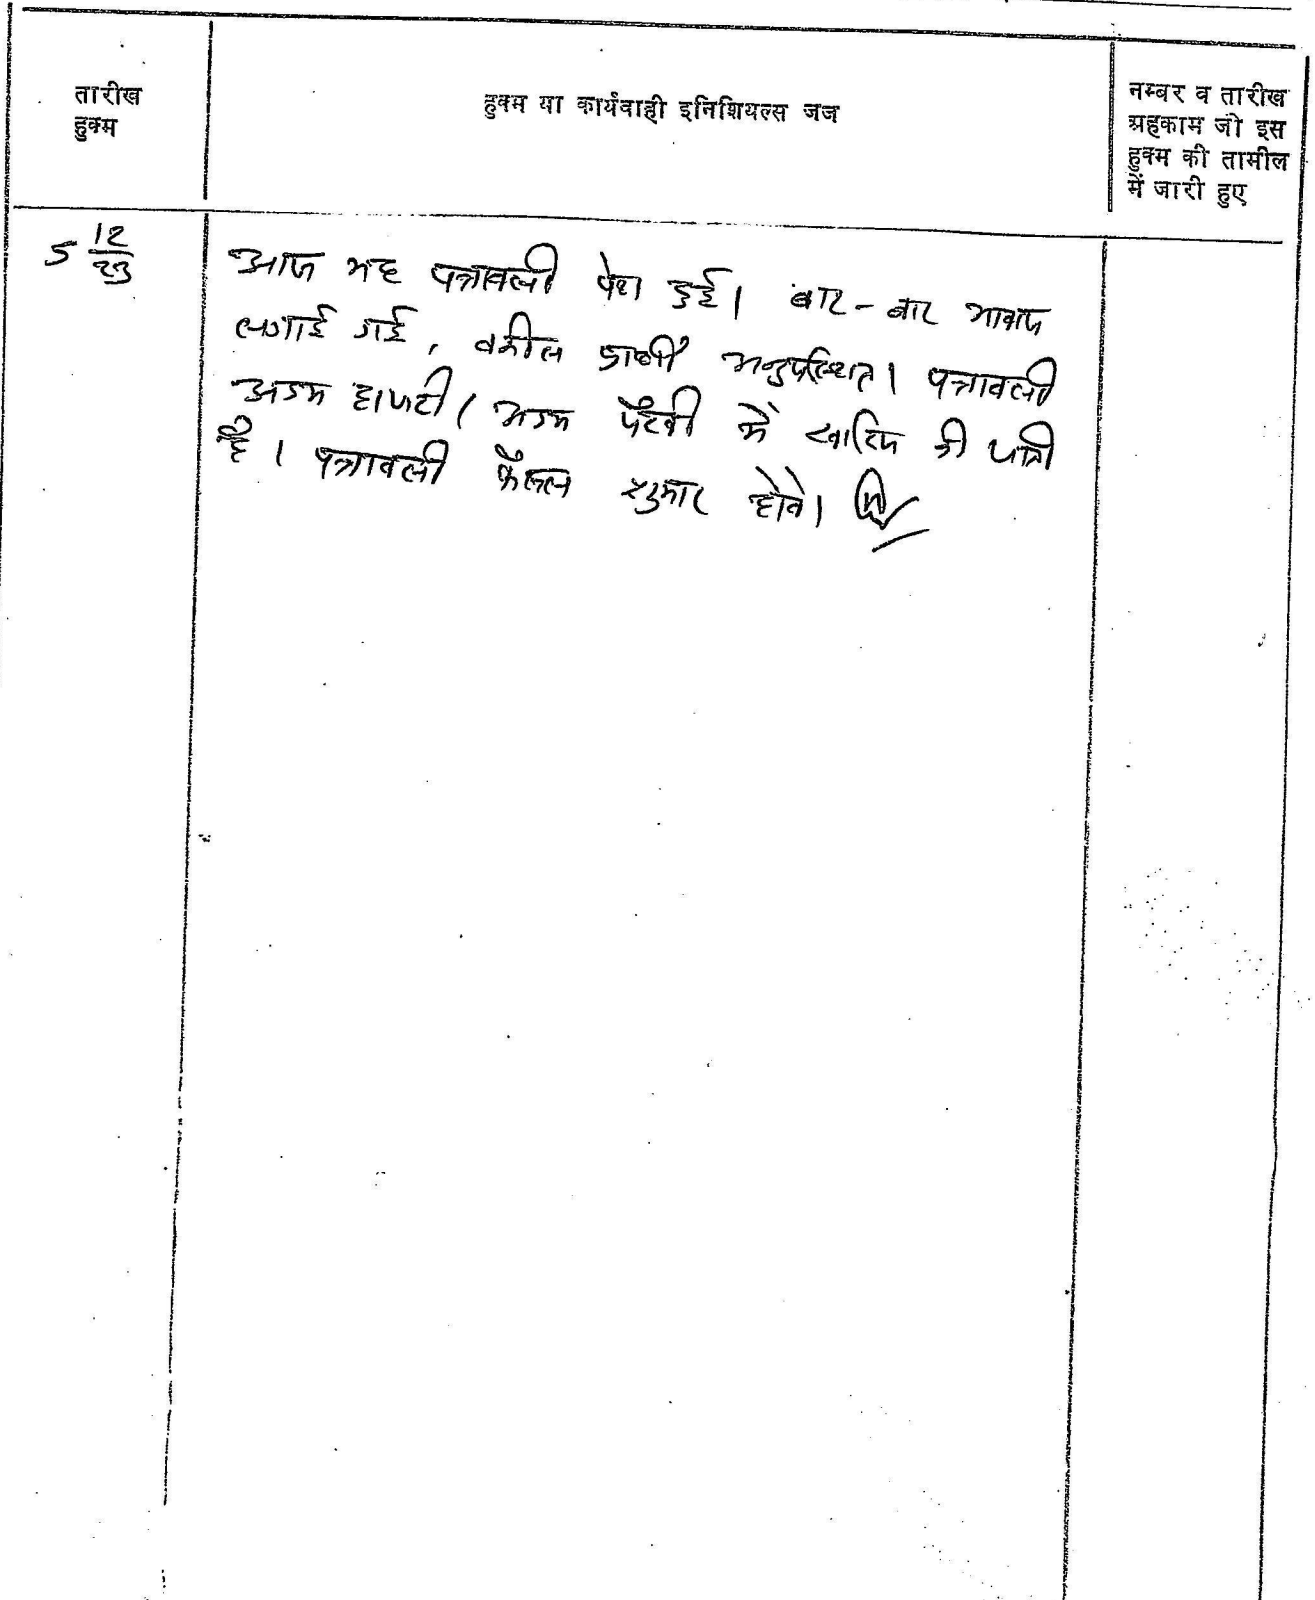 तारीख
हुक्म
हुक्म या कार्यवाही इनिशियल्स जज
नम्बर व तारीख
अहकाम जो इस
हुक्म की तामील
में जारी हुए
5 12/23
आज यह पत्रावली पेश हुई। बार-बार आवाज
लगाई गई, वकील प्रार्थी अनुपस्थित। पत्रावली
अदम हाजरी / अदम पैरवी में खारिज की जाती
है। पत्रावली फैसल शुमार होवे।